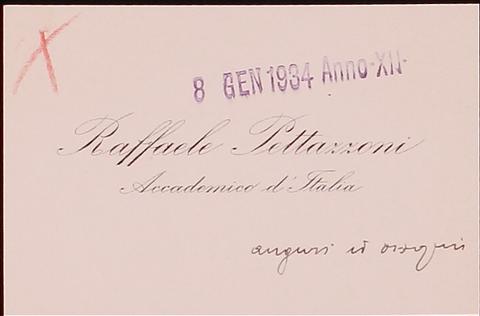 8 GEN 1934 Anno-XII-
Raffaele Pettazzoni
Accademico d'Italia
auguri ed ossequi